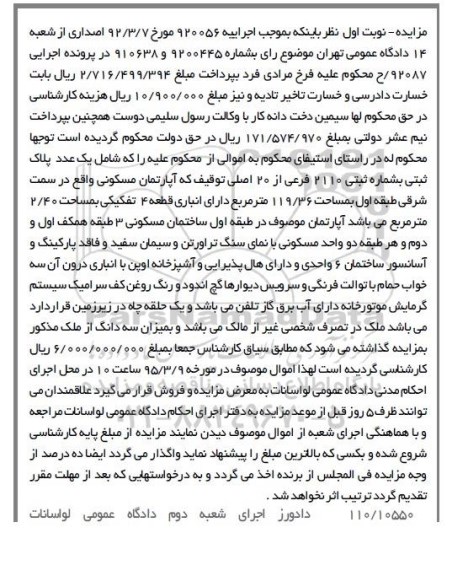 مزایده- نوبت اول نظر باینکه بموجب اجراییه ۹۲۰۰۵۶ مورخ ۹۲/۳/۷ اصداری از شعبه
۱۴ دادگاه عمومی تهران موضوع رای بشماره ۹۲۰۰۴۴۵ و ۹۱۰۶۳۸ در پرونده اجرایی
۹۲۰۸۷/ح محکوم علیه فرخ مرادی فرد بپرداخت مبلغ ۲/۷۱۶/۴۹۹/۳۹۴ ریال بابت
خسارت دادرسی و خسارت تاخیر تادیه و نیز مبلغ ۱۰/۹۰۰/۰۰۰ ریال هزینه کارشناسی
در حق محکوم لها سیمین دخت دانه کار با وکالت رسول سلیمی دوست همچنین بپرداخت
نیم عشر دولتی بمبلغ ۱۷۱/۵۷۴/۹۷۰ ریال در حق دولت محکوم گردیده است توجها
محکوم له در راستای استیفای محکوم به اموالی از محکوم علیه را که شامل یک عدد پلاک
ثبتی بشماره ثبتی ۲۱۱۰ فرعی از ۲۰ اصلی توقیف که آپارتمان مسکونی واقع در سمت
شرقی طبقه اول بمساحت ۱۱۹/۳۶ مترمربع دارای انباری قطعه ۴ تفکیکی بمساحت ۲/۴۰
مترمربع می باشد آپارتمان موصوف در طبقه اول ساختمان مسکونی ۳ طبقه همکف اول و
دوم و هر طبقه دو واحد مسکونی با نمای سنگ تراورتن و سیمان سفید و فاقد پارکینگ و
آسانسور ساختمان ۶ واحدی و دارای هال پذیرایی و آشپزخانه اوپن با انباری درون آن سه
خواب حمام با توالت فرنگی و سرویس دیوارها گچ اندود و رنگ روغن کف سرامیک سیستم
گرمایش موتورخانه دارای آب برق گاز تلفن می باشد و یک حلقه چاه در زیرزمین قرار دارد
می باشد ملک در تصرف شخصی غیر از مالک می باشد و بمیزان سه دانگ از ملک مذکور
بمزایده گذاشته می شود که مطابق سیاق کارشناس جمعا بمبلغ ۶/۰۰۰/۰۰۰/۰۰۰ ریال
کارشناسی گردیده است لهذا اموال موصوف در مورخه ۹۵/۳/۹ ساعت ۱۰ در محل اجرای
احکام مدنی دادگاه عمومی لواسانات به معرض مزایده و فروش قرار می گیرد علاقمندان می
توانند ظرف ۵ روز قبل از موعد مزایده به دفتر اجرای احکام دادگاه عمومی لواسانات مراجعه
و با هماهنگی اجرای شعبه از اموال موصوف دیدن نمایند مزایده از مبلغ پایه کارشناسی
شروع شده و بکسی که بالاترین مبلغ را پیشنهاد نماید واگذار می گردد ایضا ده درصد از
وجه مزایده فی المجلس از برنده اخذ می گردد و به درخواستهایی که بعد از مهلت مقرر
تقدیم گردد ترتیب اثر نخواهد شد .
۱۱۰/۱۰۵۵۰ دادورز اجرای شعبه دوم دادگاه عمومی لواسانات